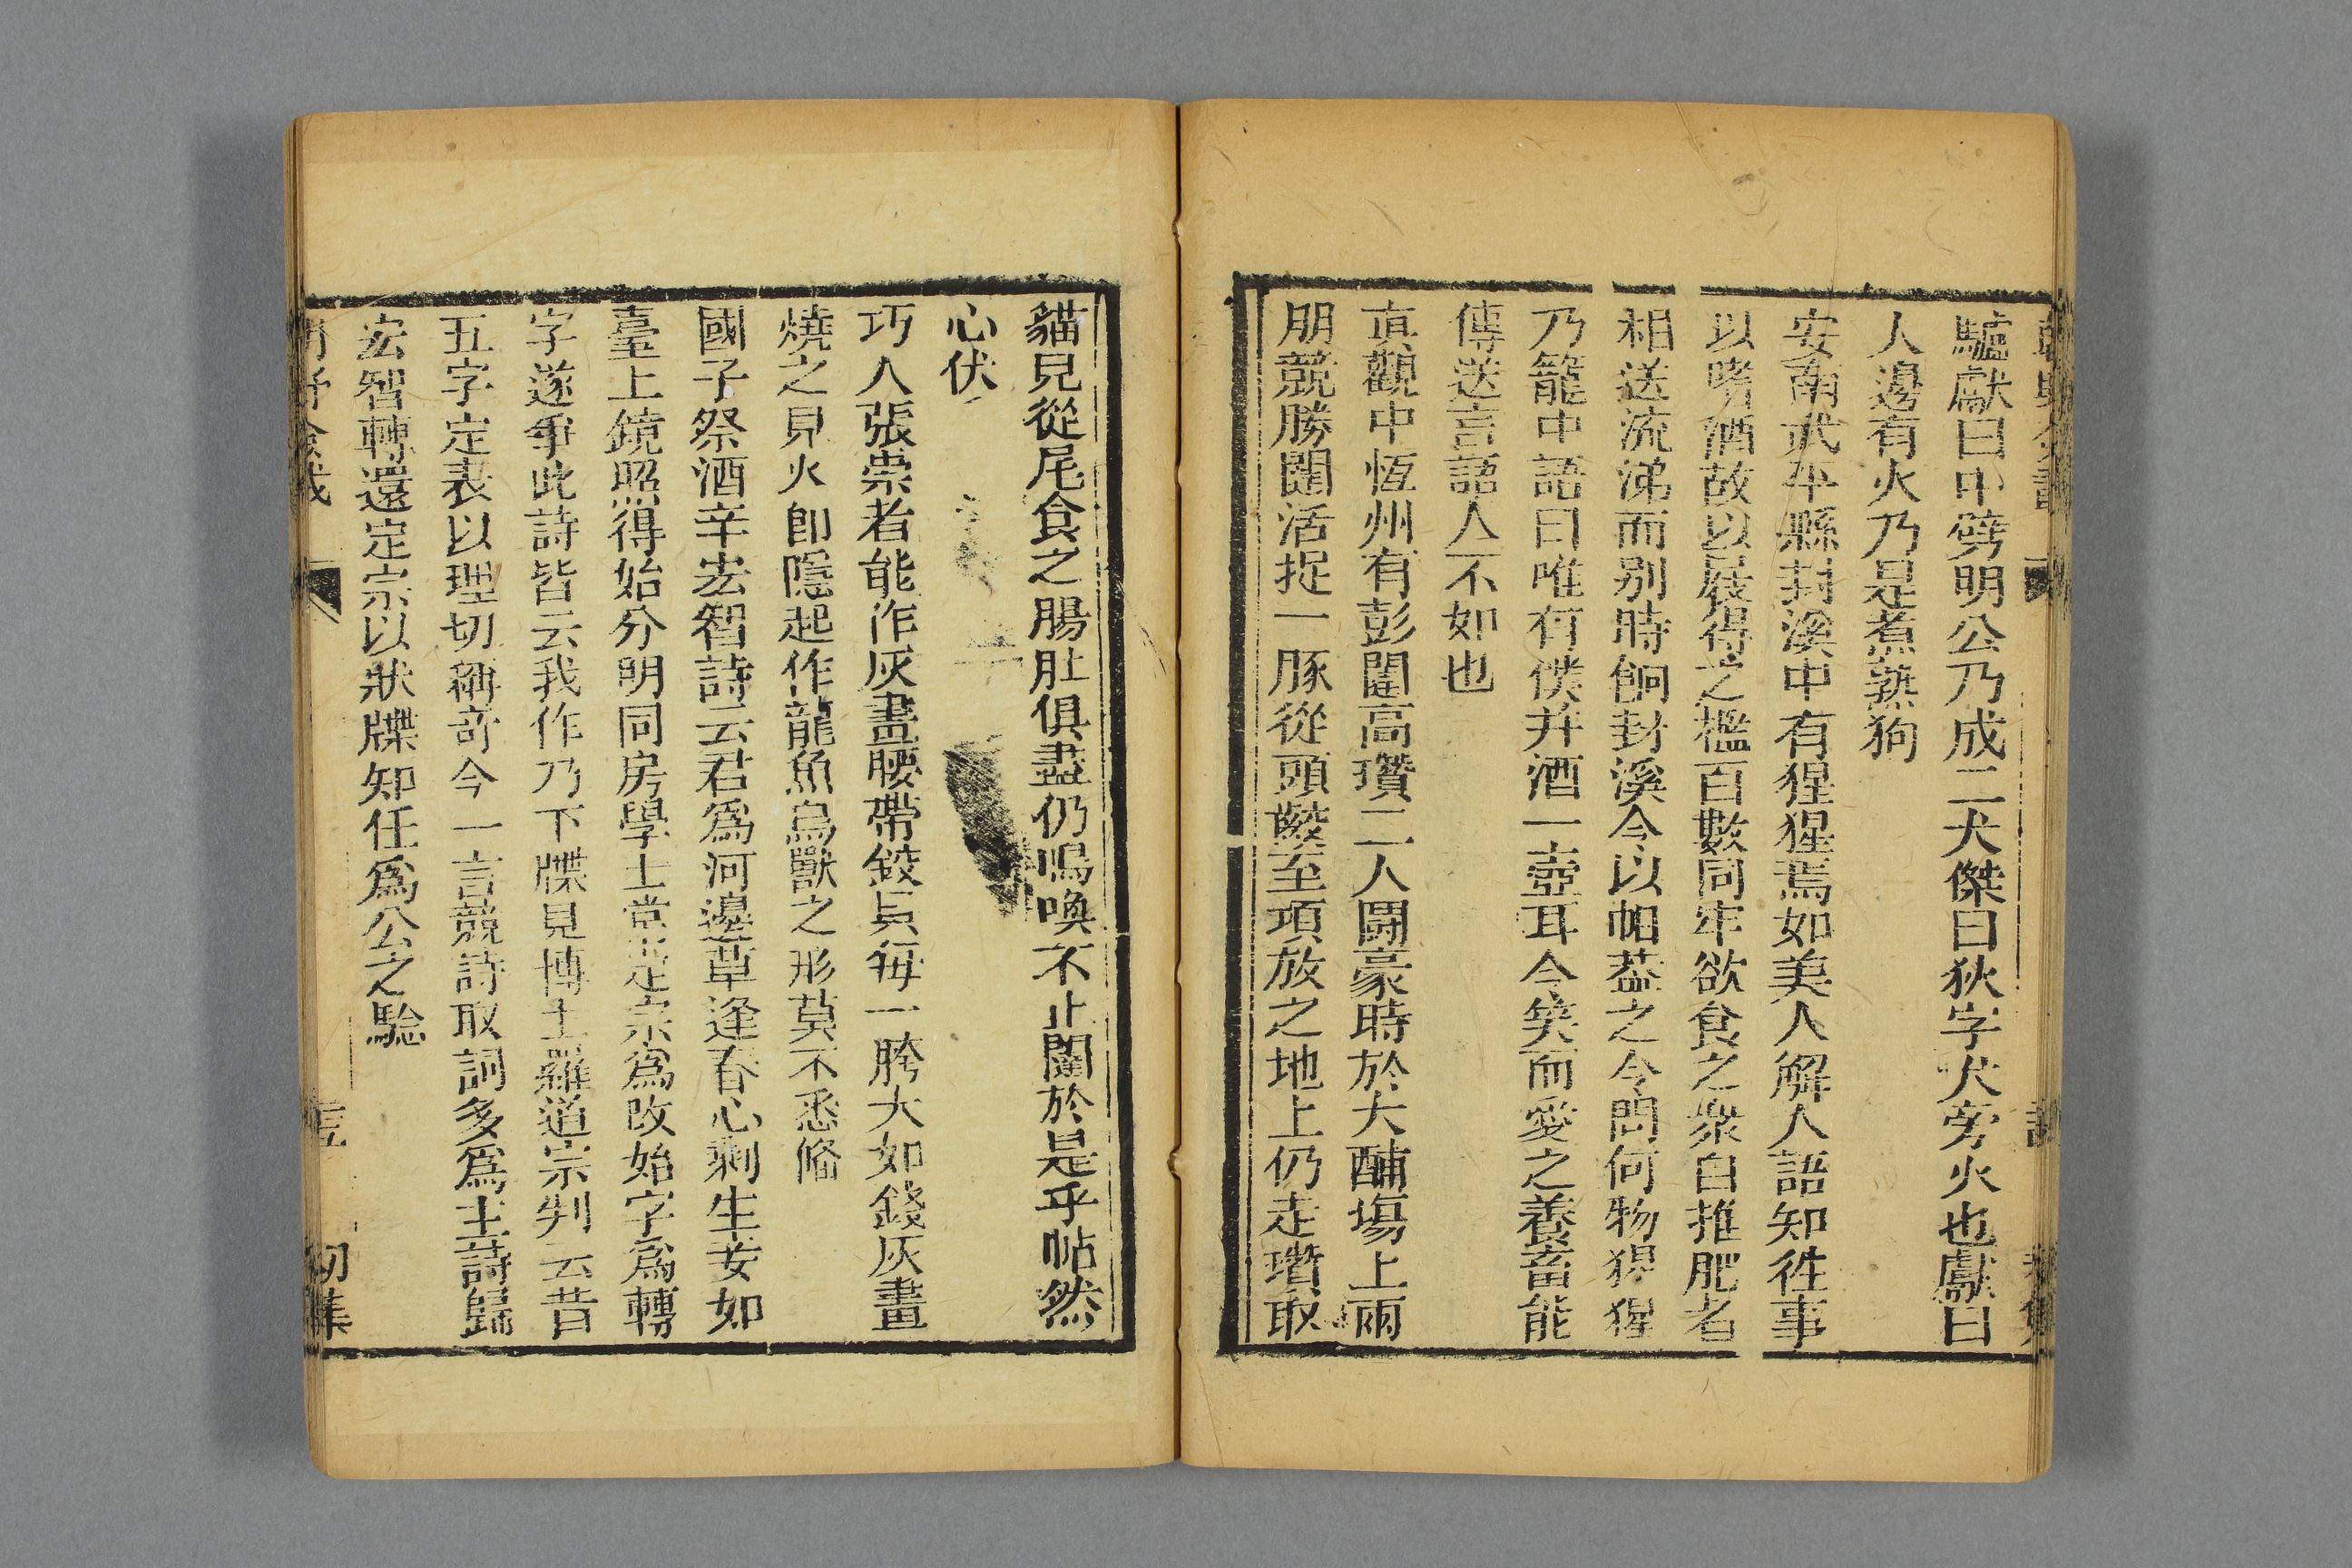 驢獻曰中劈明公乃成二犬傑曰狄字犬旁火也獻曰
人邊有火乃是煮熟狗
安南武平縣封溪中有猩猩焉如美人解人語知徃事
以嗜酒故以屐得之檻百數同牢欲食之衆自推肥者
相送流涕而别時餉封溪令以帕葢之令問何物猩猩
乃籠中語曰唯有僕并酒一壺耳令笑而愛之養畜能
傳送言語人不如也
貞觀中恆州有彭闥高瓚二人鬪豪時於大酺塲上兩
朋競勝闥活捉一豚從頭齩至項放之地上仍走瓚取
貓兒從尾食之腸肚俱盡仍鳴喚不止闥於是乎帖然
心伏
巧人張崇者能作灰畫腰帶鉸具每一胯大如錢灰畫
燒之見火卽隱起作龍魚鳥獸之形莫不悉俻
國子祭酒辛宏智詩云君爲河邊草逢春心剩生妾如
臺上鏡照得始分明同房學士常定宗爲改始字爲轉
字遂爭此詩皆云我作乃下牒見博士羅道宗判云昔
五字定表以理切稱奇今一言競詩取詞多爲主詩歸
宏智轉還定宗以狀牒知任爲公之驗
初集